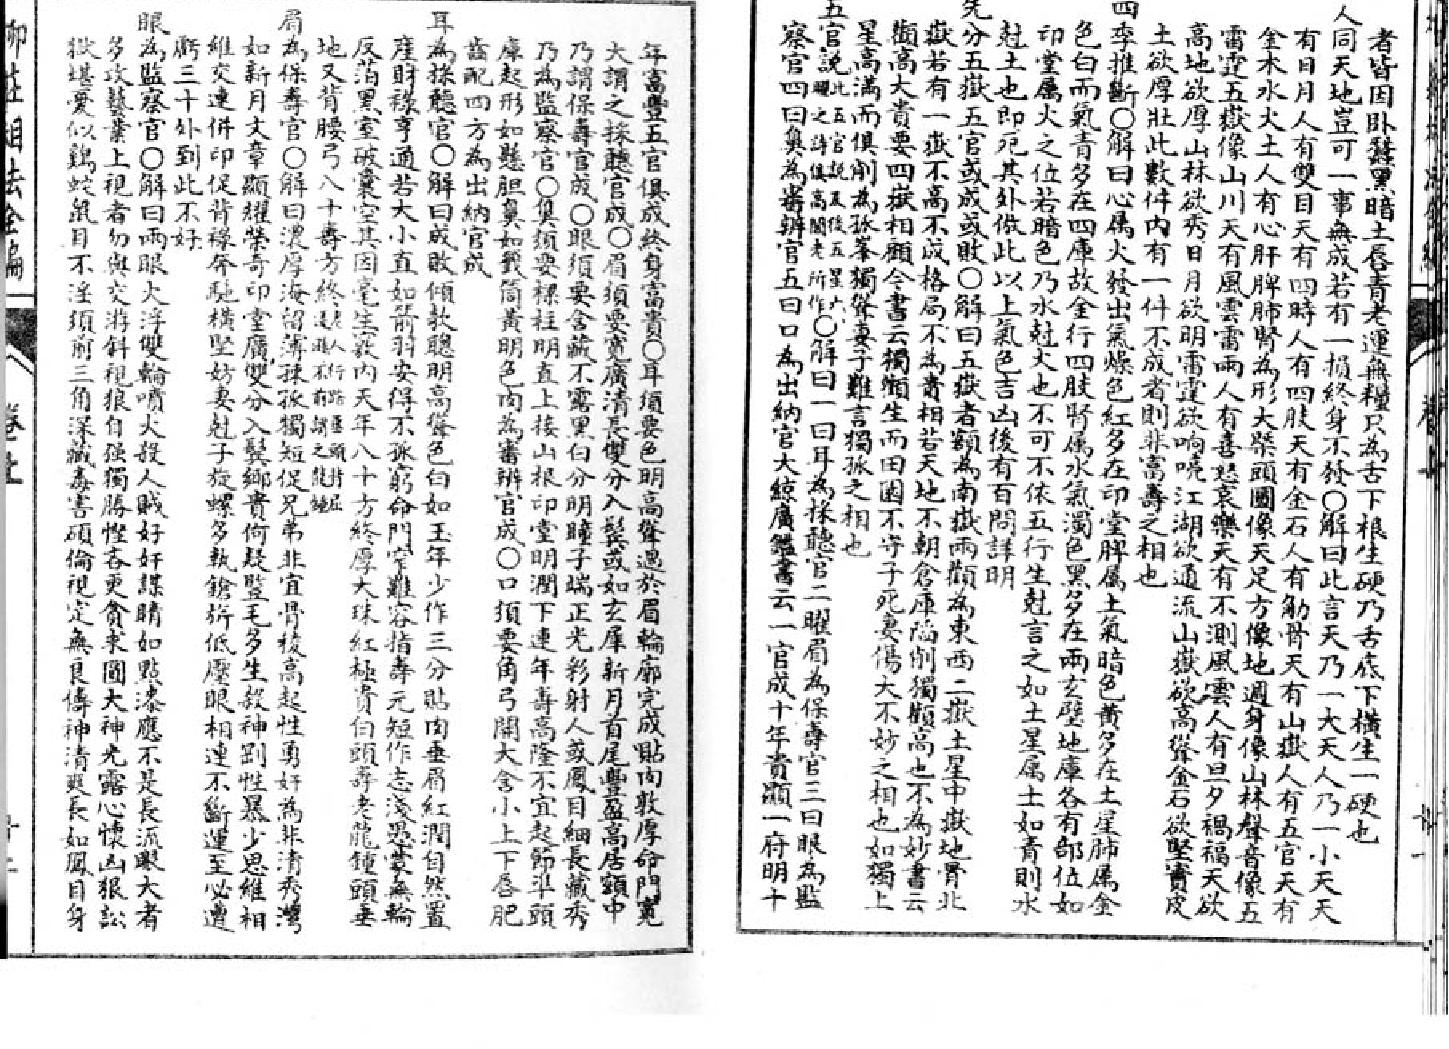 者皆因卧蠶黑暗土唇青老運無糧只為舌下根生硬乃舌底下橫生一硬也
人同天地豈可一事無成若有一損終身不發〇解曰此言天乃一大天人乃一小天天
有日月人有雙目天有四時人有四肢天有金石人有觔骨天有山嶽人有五官天有
金木水火土人有心肝脾肺腎為形大槩頭圓像天足方像地週身像山林聲音像五
雷霆五嶽像山川天有風雲雷雨人有喜怒哀樂天有不測風雲人有旦夕禍福天欲
高地欲厚山林欲秀日月欲明雷霆欲响喨江湖欲通流山嶽欲高聳金石欲堅實皮
土欲厚壯此數件内有一件不成者則非富壽之相也
四季推斷〇解曰心属火發出氣燥色紅多在印堂脾属土氣暗色黄多在土星肺属金
色白而氣青多在四庫故金行四肢腎属水氣濁色黑多在兩玄壁地庫各有部位如
印堂属火之位若暗色乃水尅火也不可不依五行生尅言之如土星属土如青則水
尅土也即死其外倣此以上氣色吉凶後有百問詳明
先分五嶽五官或成或敗〇解曰五嶽者額為南嶽兩顴為東西二嶽土星中嶽地骨北
嶽若有一嶽不高不成格局不為貴相若天地不朝倉庫陷削獨顴高也不為妙書云
顴高大貴要四嶽相顧今書云獨顴生而田園不守子死妻傷大不妙之相也如獨上
星高滿而俱削為孤峯獨聳妻子難言獨孤之相也
五官說此五官說反後五星六曜之詩俱高閣老所作〇解曰一曰耳為採聽官二曜眉為保壽官三曰眼為監
察官四曰鼻為審辨官五曰口為出納官大綜廣鑑書云一官成十年貴顯一府明十
年富豐五官俱成終身富貴〇耳須要色明高聳過於眉輪廓完成貼肉敦厚命門寬
大謂之採聽官成〇眉須要寬廣清長雙分入鬓或如玄犀新月首尾豐盈高居額中
乃謂保壽官成〇眼須要含藏不露黑白分明瞳子端正光彩射人或鳳目細長藏秀
乃為監察官〇鼻須要樑柱明直上接山根印堂明潤下連年壽高隆不宜起節準頭
庫起形如懸胆鼻如截筒黃明色肉為審辨官成〇口須要角弓開大合小上下唇肥
齒配四方為出納官成
耳為採聽官〇解曰成敗傾欹聰明高聳色白如玉年少作三分貼肉垂眉紅潤自然置
產財祿亨通若大小直如箭羽安得不孤窮命門窄難容指壽元短作志淺愚蒙無輪
反箔黑室破囊空其因毫生竅内天年八十方終厚大珠紅極貴白頭壽老龍鍾頭垂
地又背腰弓八十壽方終
眉為保壽官〇解曰濃厚海留薄踈孤獨短促兄弟非宜骨稜高起性勇好為非清秀灣
如新月文章顯耀榮奇印堂廣雙分入鬓鄉貴何疑豎毛多生殺神剛性暴少思維相
維交連併印促背祿奔馳橫堅妨妻尅子旋螺多執鎗旂低壓眼相連不斷運至必遭
虧三十外到此不好
眼為監察官〇解曰兩眼大浮雙輪噴火殺人賊好奸謀睛如點漆應不是長流眼大者
多攻藝業上視者勿與交游斜視狼自强獨勝慳吝更貪求圓大神光露心懷凶狠訟
獄堪憂似鷄蛇鼠目不淫須前三角深藏毒害碩倫視定無良儔神清爽長如鳳目身
柳莊相法全編
卷上
十二